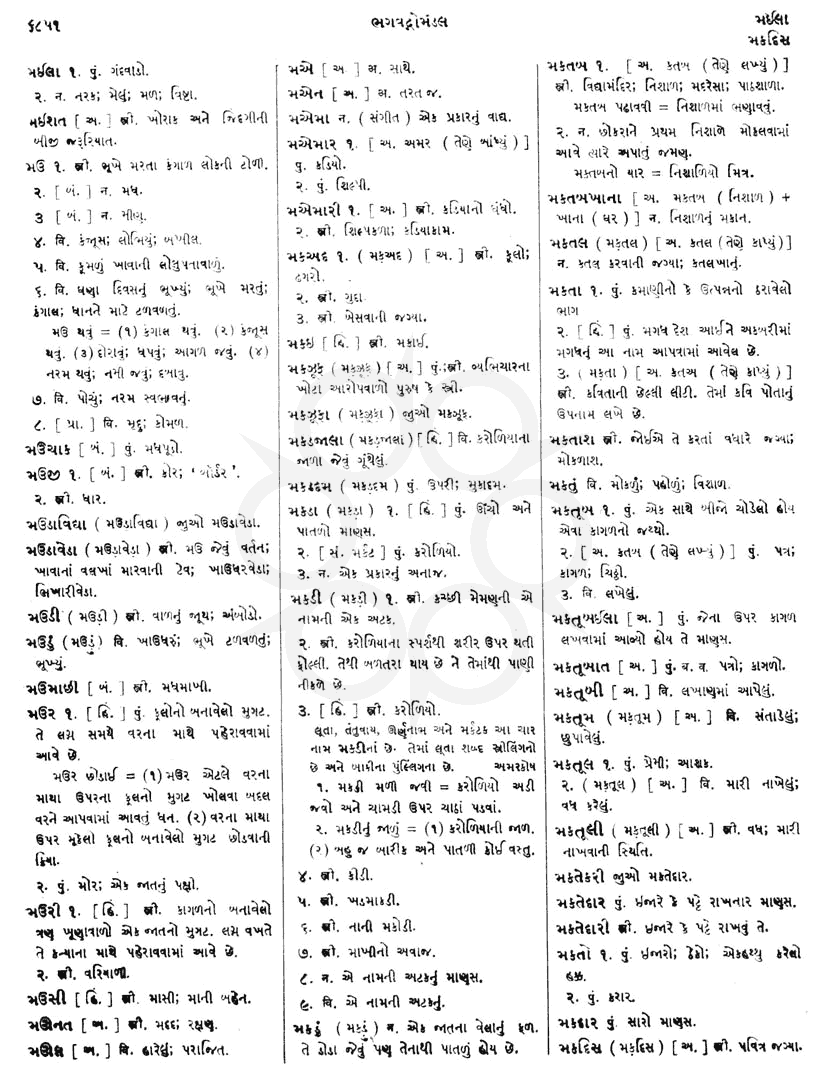 ૬૮૫૧
ભગવદ્ગોમંડલ
મઈલા
મકદિસ
મઈલા ૧. પું. ગંદવાડો.
૨. ન. નરક; મેલું; મળ; વિષ્ટા.
મઈશત [ અ. ] સ્ત્રી. ખોરાક અને જિંદગીની
બીજી જરૂરિયાત.
મઉ ૧. સ્ત્રી. ભૂખે મરતા કંગાળ લોકની ટોળી.
૨. [ બં. ] ન. મધ.
૩ [ બં. ] ન. મીણ.
૪. વિ. કંજૂસ; લોભિયું; બખીલ.
૫. વિ. કૂમળું ખાવાની લોલુપતાવાળું.
૬. વિ. ઘણા દિવસનું ભૂખ્યું; ભૂખે મરતું;
કંગાલ; ધાનને માટે ટળવળતું.
મઉ થવું = (૧) કંગાલ થવું. (૨) કંજૂસ
થવું. (૩) દોરાવું; ધપવું; આગળ જવું. (૪)
નરમ થવું; નમી જવું; દબાવું.
૭. વિ. પોચું; નરમ સ્વભાવનું.
૮. [ પ્રા. ] વિ. મૃદુ; કોમળ.
મઉચાક [ બં. ] પું. મધપૂડો.
મઉજી ૧. [ બં. ] સ્ત્રી. કોર; ‘ બોર્ડર ’.
૨. સ્ત્રી. ધાર.
મઉડાવિદ્યા ( મઉડાવિદ્યા ) જુઓ મઉડાવેડા.
મઉડાવેડા ( મઉડાવેડા ) સ્ત્રી. મઉ જેવું વર્તન;
ખાવાનાં વલખાં મારવાની ટેવ; ખાઉધરવેડા;
ભિખારીવેડા.
મઉડી ( મઉડી ) સ્ત્રી. વાળનું જૂથ; અંબોડો.
મઉડું ( મઉડું ) વિ. ખાઉધરું; ભૂખે ટળવળતું;
ભૂખ્યું.
મઉમાછી [ બં. ] સ્ત્રી. મધમાખી.
મઉર ૧. [ હિં. ] પું. ફૂલોનો બનાવેલો મુગટ.
તે લગ્ન સમયે વરના માથે પહેરાવવામાં
આવે છે.
મઉર છોડાઈ = (૧) મઉર એટલે વરના
માથા ઉપરના ફૂલનો મુગટ ખોલવા બદલ
વરને આપવામાં આવતું ધન. (૨) વરના માથા
ઉપર મૂકેલો ફૂલનો બનાવેલો મુગટ છોડવાની
ક્રિયા.
૨. પું. મોર; એક જાતનું પક્ષી.
મઉરી ૧. [ હિં. ] સ્ત્રી. કાગળનો બનાવેલો
ત્રણ ખૂણાવાળો એક જાતનો મુગટ. લગ્ન વખતે
તે કન્યાના માથે પહેરાવવામાં આવે છે.
૨. સ્ત્રી. વરિયાળી.
મઉસી [ હિં. ] સ્ત્રી. માસી; માની બહેન.
મઊનત [ અ. ] સ્ત્રી. મદદ; રક્ષણ.
મઊલ [ અ. ] વિ. હારેલું; પરાજિત.
મએ [ અ. ] અ. સાથે.
મએન [ અ. ] અ. તરત જ.
મએમા ન. ( સંગીત ) એક પ્રકારનું વાદ્ય.
મએમાર ૧. [ અ. અમર ( તેણે બાંધ્યું ) ]
પું. કડિયો.
૨. પું. શિલ્પી.
મએમારી ૧. [ અ. ] સ્ત્રી. કડિયાનો ધંધો.
૨. સ્ત્રી. શિલ્પકળા; કડિયાકામ.
મકઅદ ૧. ( મક્અદ ) [ અ. ] સ્ત્રી. કૂલો;
ઢગરો.
૨. સ્ત્રી. ગુદા.
૩. સ્ત્રી. બેસવાની જગ્યા.
મકઇ [ હિ. ] સ્ત્રી. મકાઈ.
મકઝૂફ ( મક્ઝૂફ ) [ અ. ] પું.;સ્ત્રી. વ્યભિચારના
ખોટા આરોપવાળો પુરુષ કે સ્ત્રી.
મકઝૂફા ( મક્ઝૂફા ) જુઓ મકઝૂફ.
મકડજાલા ( મકડ્જાલા ) [ હિં. ] વિ. કરોળિયાના
જાળા જેવું ગૂંથેલું.
મકદ્દમ ( મક્દ્દમ ) પું. ઉપરી; મુકાદમ.
મકડા ( મકડા ) ૧. [ હિં. ] પું. ઊંચો અને
પાતળો માણસ.
૨. [ સં. મર્કટ ] પું. કરોળિયો.
૩. ન. એક પ્રકારનું અનાજ.
મકડી ( મકડી ) ૧. સ્ત્રી. કચ્છી મેમણની એ
નામની એક અટક.
૨. સ્ત્રી. કરોળિયાના સ્પર્શથી શરીર ઉપર થતી
ફોલ્લી. તેથી બળતરા થાય છે ને તેમાંથી પાણી
નીકળે છે.
૩. [ હિ. ] સ્ત્રી. કરોળિયો.
લૂતા, તંતુવાય, ઊર્ણુનાભ અને મર્કટક આ ચાર
નામ મકડીનાં છે. તેમાં લૂતા શબ્દ સ્ત્રીલિંગનો
છે અને બાકીના પુંલ્લિગના છે. અમરકોષ
૧. મકડી મળી જવી = કરોળિયો અડી
જવો અને ચામડી ઉપર ચાઠાં પડવાં.
૨. મકડીનું જાળું = (૧) કરોળિયાની જાળ.
(૨) બહુ જ બારીક અને પાતળી કોઈ વસ્તુ.
૪. સ્ત્રી. કીડી.
૫. સ્ત્રી. ખડમાકડી.
૬. સ્ત્રી. નાની મકોડી.
૭. સ્ત્રી. માખીનો અવાજ.
૮. ન. એ નામની અટકનું માણસ.
૯. વિ. એ નામની અટકનું.
મકડું ( મકડું ) ન. એક જાતના વેલાનું ફળ.
તે ડોડા જેવું પણ તેનાથી પાતળું હોય છે.
મકતબ ૧. [ અ. કતબ ( તેણે લખ્યું ) ]
સ્ત્રી. વિદ્યામંદિર; નિશાળ; મદરેસા; પાઠશાળા.
મકતબ પઢાવવી = નિશાળમાં ભણાવવું.
૨. ન. છોકરાને પ્રથમ નિશાળે મોકલવામાં
આવે ત્યારે અપાતું જમણ.
મકતબનો યાર = નિશાળિયો મિત્ર.
મકતબખાના [ અ. મકતબ ( નિશાળ ) +
ખાના ( ઘર ) ] ન. નિશાળનું મકાન.
મકતલ ( મક્તલ ) [ અ. કતલ (તેણે કાપ્યું) ]
ન. કતલ કરવાની જગ્યા; કતલખાનું.
મકતા ૧. પું. કમાણીનો કે ઉત્પન્નનો ઠરાવેલો
ભાગ
૨. [ હિં. ] પું. મગધ દેશ આઈને અકબરીમાં
મગધનું આ નામ આપવામાં આવેલ છે.
૩. ( મક્તા ) [ અ. કતઅ ( તેણે કાપ્યું ) ]
સ્ત્રી. કવિતાની છેલ્લી લીટી. તેમાં કવિ પોતાનું
ઉપનામ લખે છે.
મકતાશ સ્ત્રી. જોઈએ તે કરતાં વધારે જગ્યા;
મોકળાશ.
મકતું વિ. મોકળું; પહોળું; વિશાળ.
મકતૂબ ૧. પું. એક સાથે બીજો ચોડેલો હોય
એવા કાગળનો જથ્થો.
૨. [ અ. કતબ ( તેણે લખ્યું ) ] પું. પત્ર;
કાગળ; ચિઠ્ઠી.
૩. વિ. લખેલું.
મકતૂબઈલા [ અ. ] પું. જેના ઉપર કાગળ
લખવામાં આવ્યો હોય તે માણસ.
મકતૂબાત [ અ. ] પું. બ. વ. પત્રો; કાગળો.
મકતૂબી [ અ. ] વિ. લખાણમાં આપેલું.
મકતૂમ ( મક્તૂમ ) [ અ. ] વિ. સંતાડેલું;
છુપાવેલું.
મકતૂલ ૧. પું. પ્રેમી; આશક.
૨. ( મક્તૂલ ) [ અ. ] વિ. મારી નાખેલું;
વધ કરેલું.
મકતૂલી ( મક્તૂલી ) [ અ. ] સ્ત્રી. વધ; મારી
નાખવાની સ્થિતિ.
મકતેકરી જુઓ મકતેદાર.
મકતેદાર પું. ઇજારે કે પટ્ટે રાખનાર માણસ.
મકતેદારી સ્ત્રી. ઇજારે કે પટ્ટે રાખવું તે.
મકતો ૧. પું. ઇજારો; ઠેકો; એકહથ્થુ કરેલો
હક્ક.
૨. પું. કરાર.
મકદાર પું. સારો માણસ.
મકદિસ ( મક્દિસ ) [ અ. ] સ્ત્રી. પવિત્ર જગ્યા.